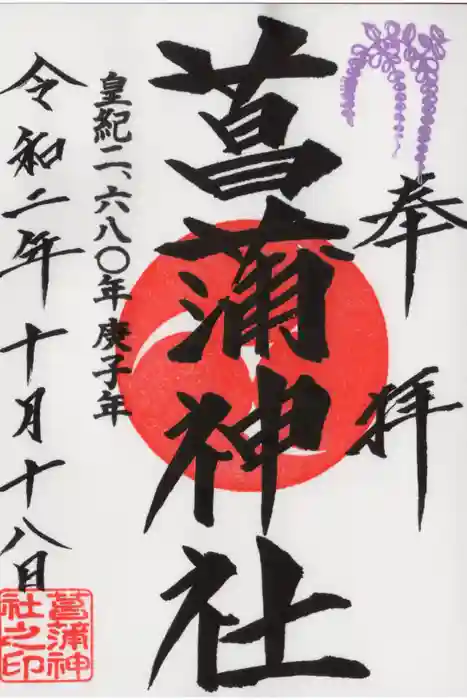 奉拝
菖蒲神社
皇紀二、六八〇年庚子年
令和二年十月十八日
菖蒲神
社之印